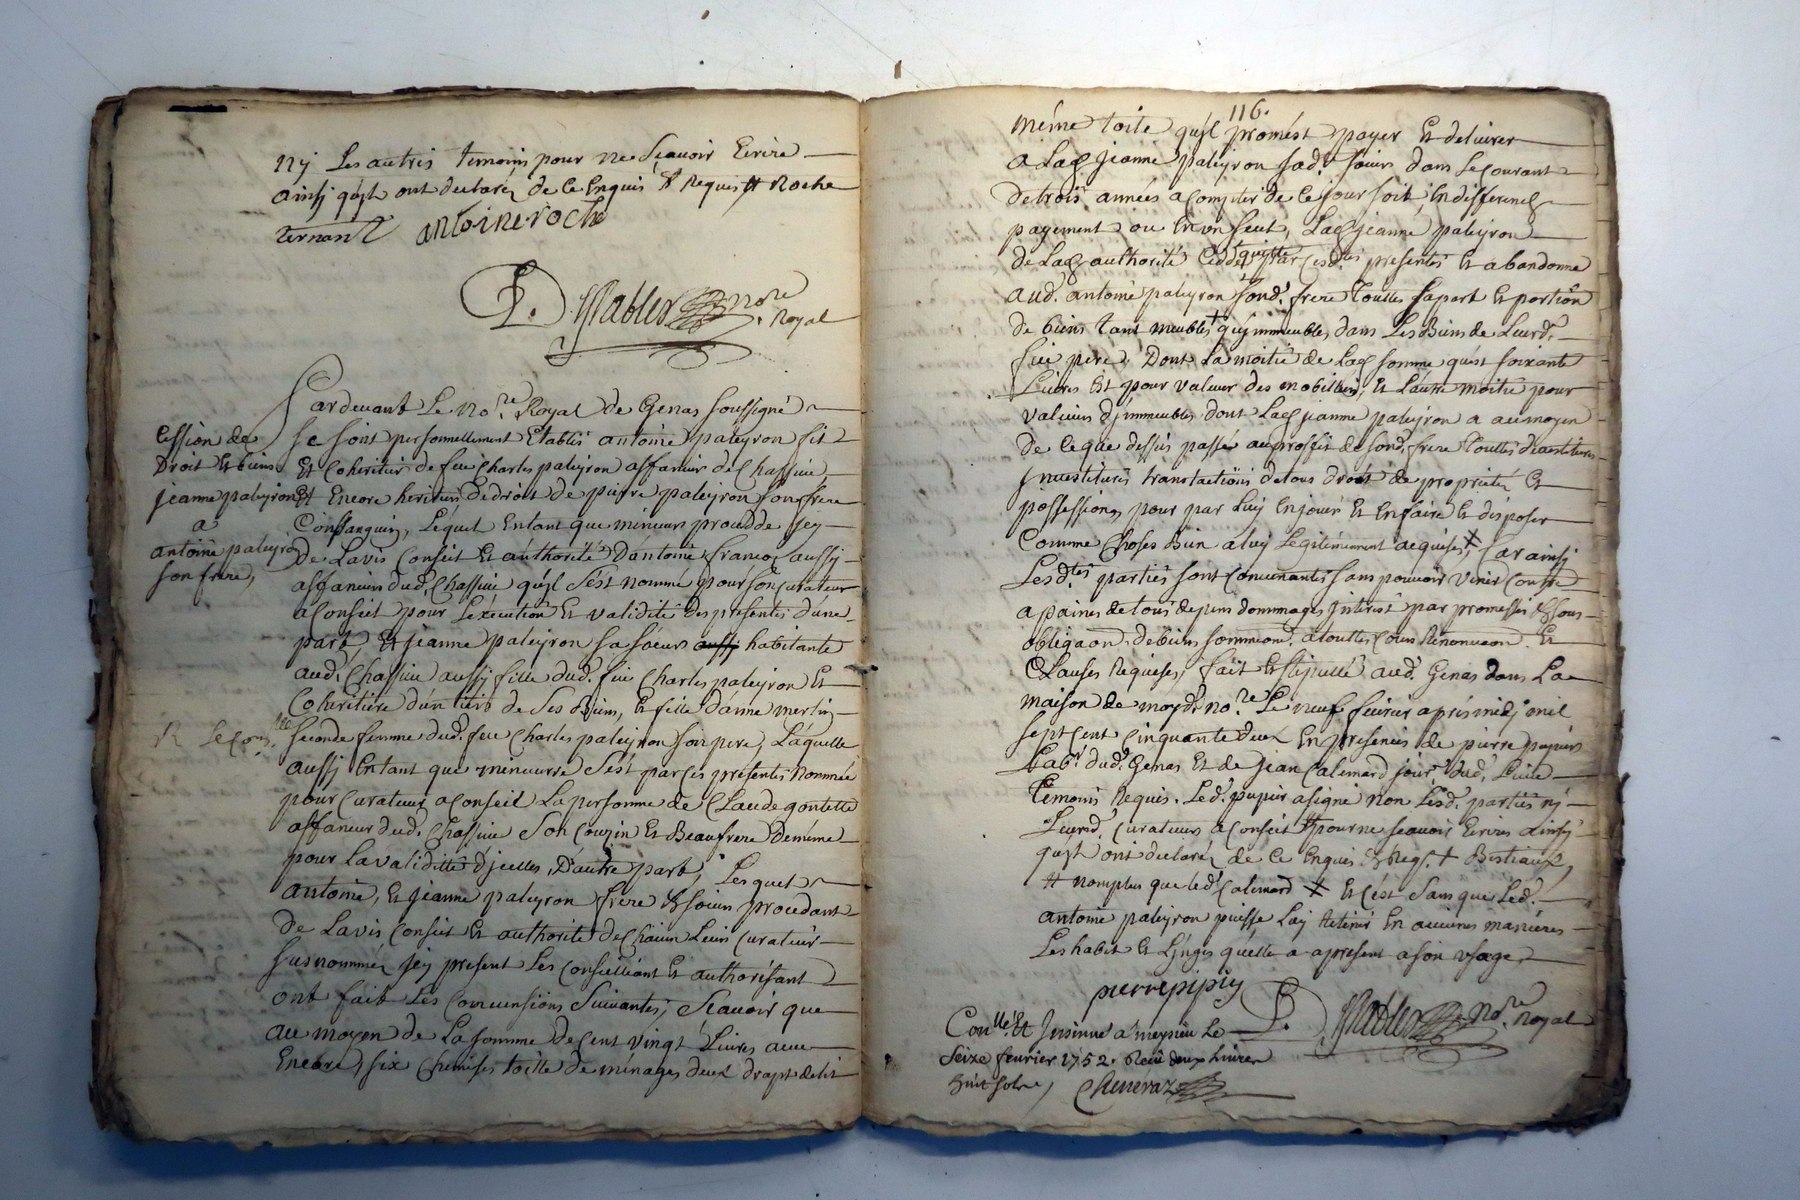 nÿ Les autres temoins pour ne Sçauoir Ecrire
ainsy qu'ylz ont declarés de ce Enquis & Requis # Roche
ternant antoine roche
D. nore
Royal
Pardeuant Le nore. Royal de Genas soussigné
se sont personnellement Etablis antoine paleyron fils
Et Coheritier de feu Charles paleyron affaneur de Chassieu
Et Encore heritier de droit de pierre paleyron son frere
Consanguin, Lequel Entant que mineur procedde Jcy
De Lavis Conseil Et authorité D'antoine francoz aussy
affaneur dud. Chassieu qu'yl s'est nommé pour son Curateur
a Conseil pour L'execution Et validité des presentes d'une
part, Et jeanne paleyron sa soeur aussy habitante
aud. Chassieu aussy fille dud. feu Charles paleyron Et
Coheritiere d'un tiers de ses Biens, Et fille d'anne merlin
seconde femme dud. feu Charles paleyron son pere, Laquelle
aussy Entant que mineurre s'est par ces presentes nommée
pour Curateur a Conseil La personne de Claude gontette
affaneur dud. Chassieu son Couzin Et Beaufrere Demême
pour La validitté d'jcelles, D'autre part, Les quels
antoine, Et jeanne paleyron frere & soeur procedant
De Lavis Conseil Et authorité de Chacun Leurs Curateur
susnommez jcy present Les Conseilliant Et authorisant
ont fait Les Conventions Suivantes, Scauoir que
au moyen de La somme de Cent vingt Liures auec
Encore six Chemises toille de ménages deux drapt de lit
Cession de
Droit Et biens
jeanne paleyron
a
antoine paleyron
son frere,
116.
même toile qu'yl promest payer Et deliurer
a Lad. jeanne paleyron sad. soeur dans Le Courant
de trois années a Compter de Ce jour soit En differend
payement ou En un seul, Lad. jeanne paleyron
de Lad. authorité Cedde quitte par Cesd.tes presentes Et abandonne
aud. antoine paleyron sond. frere touttes sa part Et portion
de biens tant meubles + qu'ymmeubles dans Les Biens de Leurd.
feu pere, Dont La moitié de Lad. somme qu'est soixante
Liures Est pour valeur des mobilliers, Et L'autre moitié pour
valeur d'jmmeubles dont Lad. jeanne paleyron a au moyen
de Ce que dessus passée au proffit de sond. frere touttes devestitures
jnvestitures translations de tous droits de proprieté Et
possessions pour par Luy En jouir Et En faire Et disposer
Comme Choses Bien a luy Legitimement acquises, X Car ainsy
Lesd.tes parties sont Convenantes sans pouvoir venir Contre
a paines de tous depens dommages jnterest par promesses sous
obligaon. de biens soumission. a touttes Cours Renonciaon. Et
Clauses Requises, fait Et stipullé aud. Genas dans La
maison de moyd. nore. Le neuf feurier apres midy mil
sept cent Cinquante deux En presences de pierre pupier
Labr. dud. Genas Et de jean Calemard jour. dud. Lieu
temoins Requis. Led. pupier a signé non Lesd. parties nÿ
Leursd. Curateurs a Conseil # pour ne scauoir Ecrire ainsy
qu'ylz ont declarés de Ce Enquis & Req. + Bestiaux,
# nomplus que led. Calemard X Et C'est sans que Led.
antoine paleyron puisse Luy Retenir En aucunes manieres
Les habit Et Lynges qu'elle a apresent a son vsage,
pierre pipiy
D. nore. Royal
Conlle. Et Insinué a meysieu Le
Seize feurier 1752. Reçu deux Liures
huit sols,